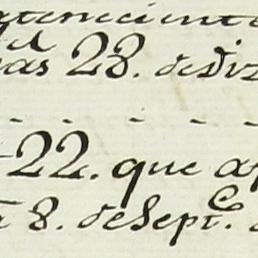 ertenecient
as 28. de Diz
22. que a
8. de Sept.e